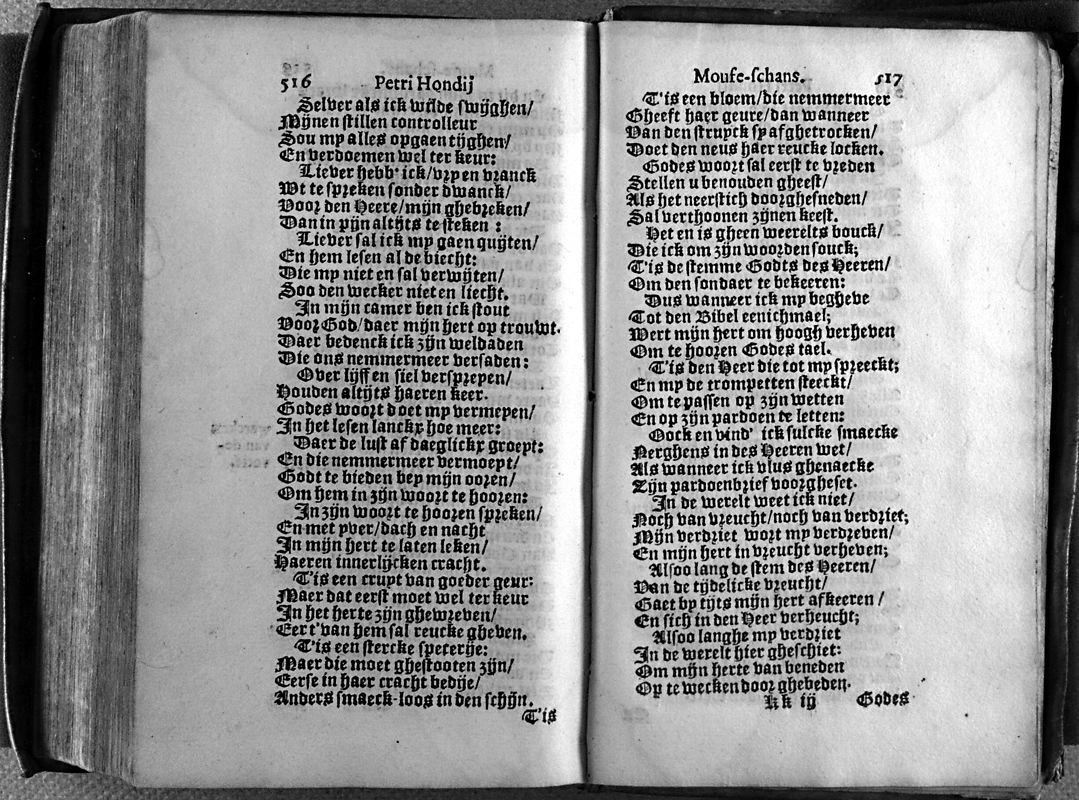 516 Petri Hondij
Selver als ick wilde swijghen/
Mijnen stillen controlleur
Sou my alles opgaen tijghen/
En verdoemen wel ter keur:
Liever hebb' ick/vry en vranck
Wt te spreken sonder dwanck/
Voor den Heere/mijn ghebreken/
Dan in pijn altijts te steken :
Liever sal ick my gaen quijten/
En hem lesen al de biecht:
Die my niet en sal verwijten/
Soo den wecker niet en liecht.
In mijn camer ben ick stout
Voor God/daer mijn hert op trouwt.
Daer bedenck ick zijn weldaden
Die ons nemmermeer versaden:
Over lijff en siel verspreyen/
Houden altijts haeren keer.
Godes woort doet my vermeyen/
In het lesen lanckx hoe meer:
Daer de lust af daeglickx groeyt:
En die nemmermeer vermoeyt/
Godt te bieden bey mijn ooren/
Om hem in zijn woort te hooren:
In zijn woort te hooren spreken/
En met yver/dach en nacht
In mijn hert te laten leken/
Haeren innerlijcken cracht.
T'is een cruyt van goeder geur:
Maer dat eerst moet wel ter keur
In het herte zijn ghewreven/
Eer t'van hem sal reucke gheven.
T'is een stercke speterije:
Maer die moet ghestooten zijn/
Eerse in haer cracht bedije/
Anders smaeck-loos in den schijn.
T'is
Mouse-schans. 517
T'is een bloem/die nemmermeer
Gheeft haer geure/dan wanneer
Van den struyck sy afghetrocken/
Doet den neus haer reucke locken.
Godes woort sal eerst te vreden
Stellen u benouden gheest/
Als het neerstich doorghesneden/
Sal verthoonen zijnen keest.
Het en is gheen weerelts bouck/
Die ick om zijn woorden souck;
T'is de stemme Godts des Heeren/
Om den sondaer te bekeeren:
Dus wanneer ick my begheve
Tot den Bibel eenichmael;
Wert mijn hert om hoogh verheven
Om te hooren Godes tael.
T'is den Heer die tot my spreeckt;
En my de trompetten steeckt/
Om te passen op zijn wetten
En op zijn pardoen te letten:
Oock en vind' ick sulcke smaecke
Nerghens in des Heeren wet/
Als wanneer ick vlus ghenaecke
Zijn pardoenbrief voorgheset.
In de werelt weet ick niet/
Noch van vreucht/noch van verdriet;
Mijn verdriet wort my verdreven/
En mijn hert in vreucht verheven;
Alsoo lang de stem des Heeren/
Van de tijdelicke vreucht/
Gaet by tijts mijn hert afkeeren /
En sich in den Heer verheucht;
Alsoo langhe my verdriet
In de werelt hier gheschiet:
Om mijn herte van beneden
Op te wecken door ghebeden.
Kk ij Godes